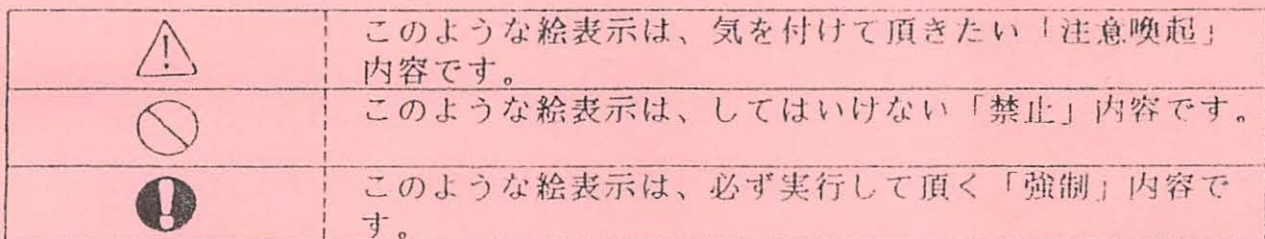 このような絵表示は、気を付けて頂きたい「注意喚起」
内容です。
このような絵表示は、してはいけない「禁止」内容です。
このような絵表示は、必ず実行して頂く「強制」内容で
す。